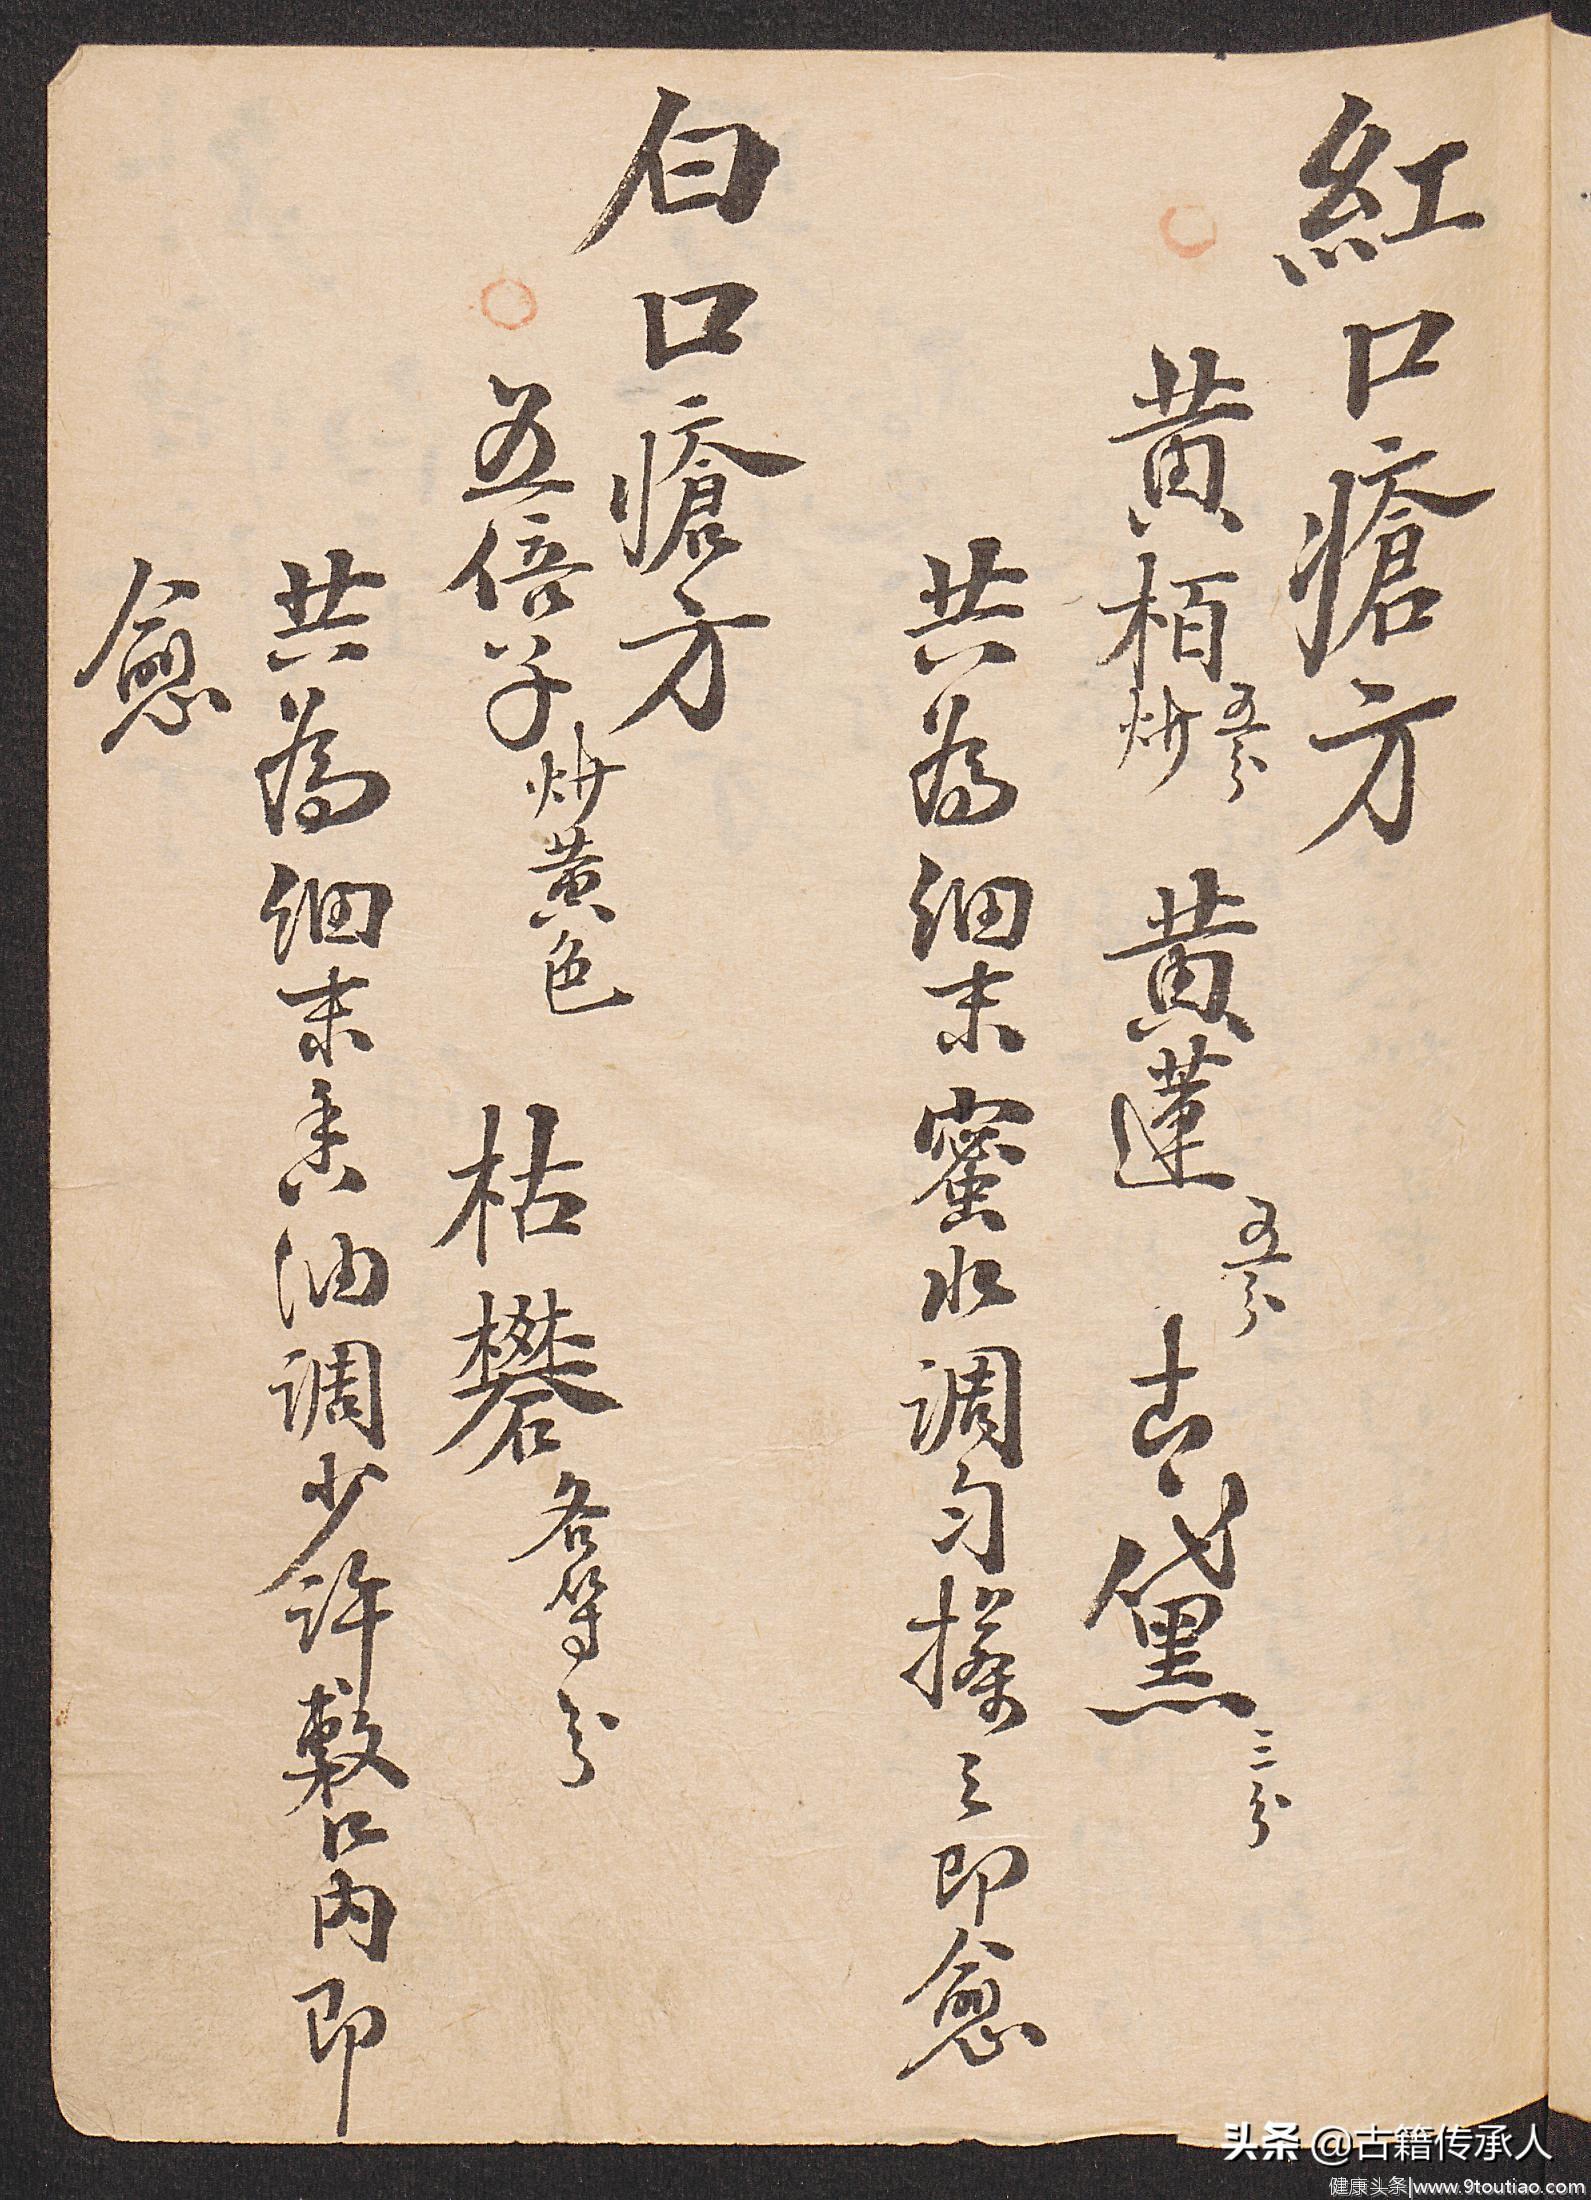 紅口瘡方
黄栢炒五分 黄蓮五分 青黛二分
共為細末蜜水調匀搽之即愈
白口瘡方
五倍子炒黄色 枯礬各等分
共為細末香油調少許敷口内即
愈
头条 @古籍传承人
健康头条|www.9toutiao.com